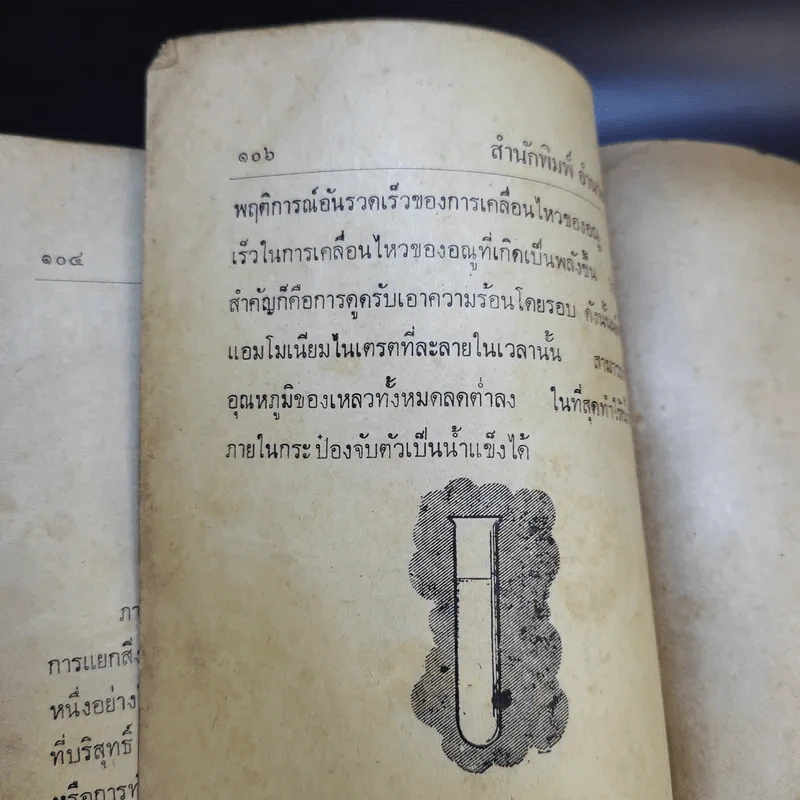 ๑๐๔
ภา
การแยกสิ่
หนึ่งอย่าง
ที่บริสุทธิ์
หรือการท
๑๐๖
สำนักพิมพ์
พฤติการณ์อันรวดเร็วของการเคลื่อนไหวของอณู
เร็วในการเคลื่อนไหวของอณูที่เกิดเป็นพลังขึ้น
สำคัญก็คือการดูดรับเอาความร้อนโดยรอบ ดังนั้น
แอมโมเนียมไนเตรตที่ละลายในเวลานั้น
อุณหภูมิของเหลวทั้งหมดลดต่ำลง ในที่สุดทำให้
ภายในกระป๋องจับตัวเป็นน้ำแข็งได้